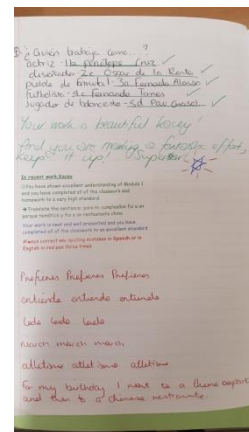 ¿Quién trabaja como...?
actriz - 1b penélope Cruz
diseñador 2e Oscar de la Renta
piloto de formula 1 - 3a Fernando Alonso
futbolista - 4c Fernando Torres
jugador de baloncesto - 5d Pau Gasol
Your work is beautiful
And you are making a fantastic effort,
keep it up!
In recent work,
you have shown excellent understanding of Module 1
and you have completed all of the classwork and
homework to a very high standard.
Translate the sentence:
Your work is neat and well presented and you have
completed all of the classwork to an excellent standard
Always correct any spelling mistakes in Spanish or in
English in red pen three times
Prefieres Prefieres Prefieres
entiende entiendo entiende
lado lado lado
March march march
atletismo atletismo atletismo
For my birthday I went to a theme
and then to a chinese